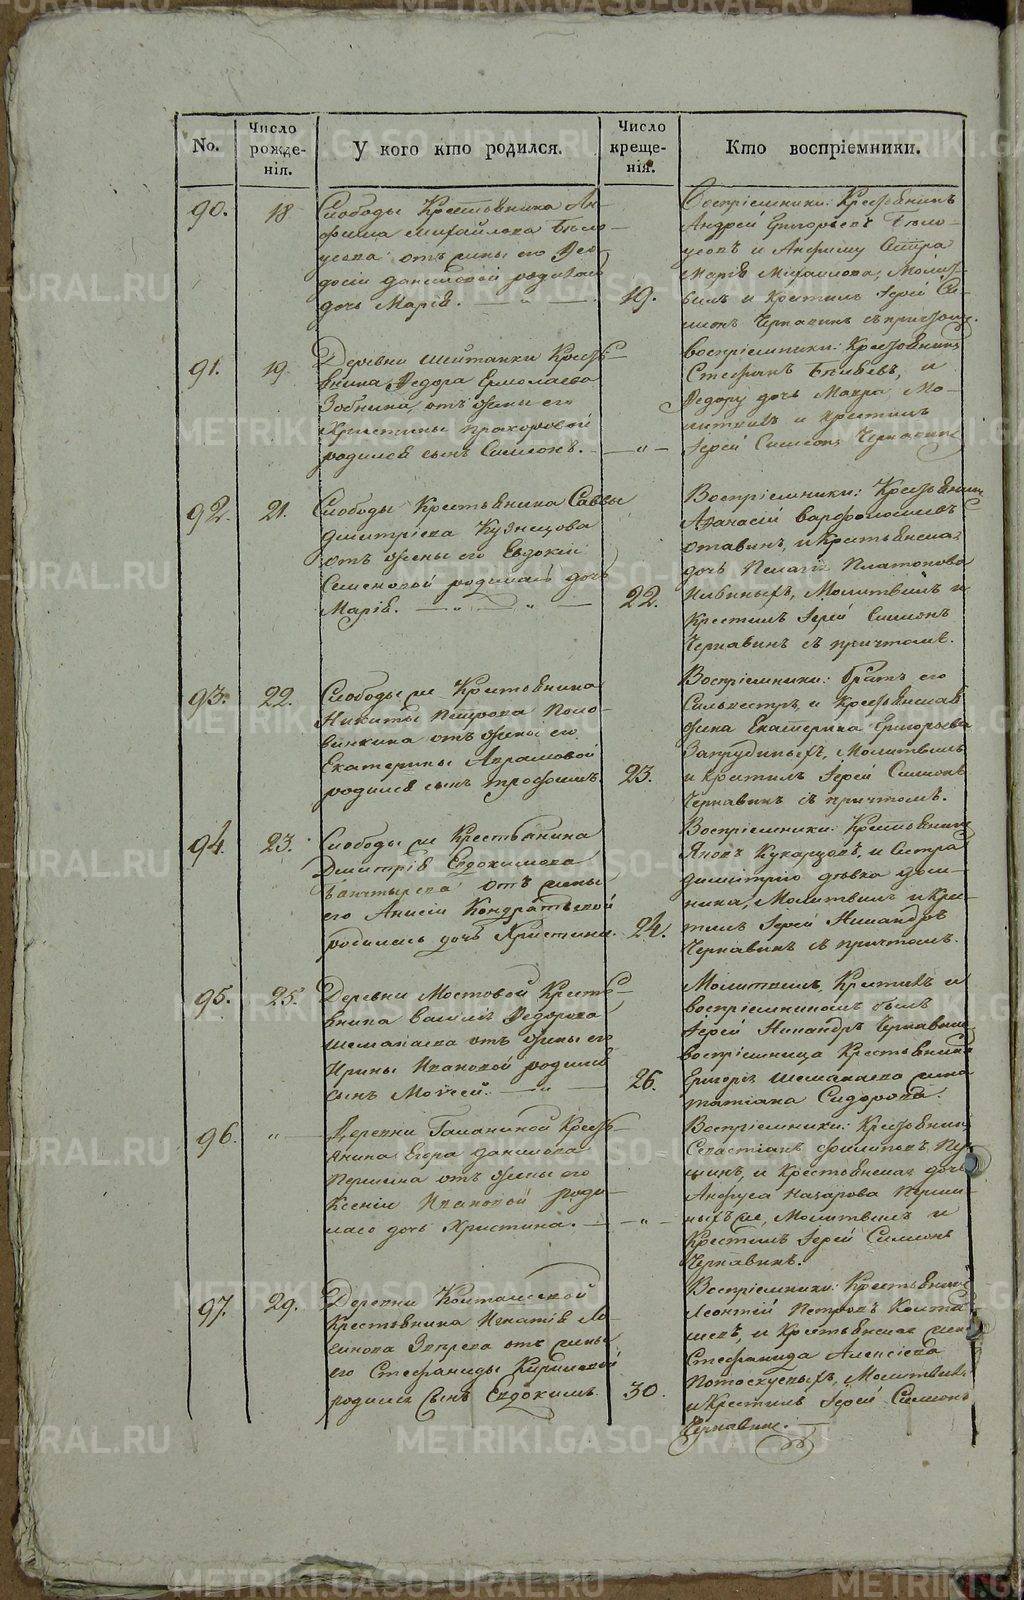 No.
Число рожде-нія.
У кого кто родился.
Число креще-нія.
Кто воспріемники.
90.
18
Слободы Крестьянина Ан-
фима Михайлова Бѣло-
усова отъ жены его Ѳео-
досіи родилась
дочь Марія.
19.
Воспріемники: Крестьянинъ
Андрей Григорьевъ Бѣло-
усовъ и Анфиму сестра
Марія Михайлова, Молит-
вилъ и крестилъ Іерей Си-
мionъ Чернавинъ съ причтомъ.
91.
19.
Деревни Шайтанки Кресть-
янина Ѳедора Ермолаева
Зобнина, отъ жены его
Христины Прохоровой
родился сынъ Симеонъ.
— „ —
Воспріемники: Крестьянинъ
Стефанъ и
Ѳедору дочь Мавра, Мо-
литвилъ и крестилъ
Іерей Симеонъ Чернавинъ
92.
21.
Слободы Крестьянина Саввы
Димитріева Кузнецова
отъ жены его Евдокіи
Семеновой родилась дочь
Марія. — „ — „ —
22.
Воспріемники: Крестьянинъ
Аѳанасій Варфоломеевъ
и Крестьянская
дочь Пелагія Платонова
Молитвилъ и
Крестилъ Іерей Симеонъ
Чернавинъ съ причтомъ.
93.
22.
Слободы же Крестьянина
Никиты Петрова Поло-
винкина отъ жены его
Екатерины Аврамовой
родился сынъ Трофимъ.
23.
Воспріемники: братъ его
Сильвестръ, и Крестьянская
жена Екатерина Григорьева
Запрудиныхъ, Молитвилъ
и крестилъ Іерей Симеонъ
Чернавинъ съ причтомъ.
94.
23.
Слободы же Крестьянина
Димитрія Евдокимова
отъ жены
его Анисіи Кондратьевой
родилась дочь Христина.
24.
Воспріемники: Крестьянинъ
Яковъ Кукарцовъ, и сестра
Димитрію дѣвка
Молитвилъ и Кре-
стилъ Іерей Никандръ
Чернавинъ съ причтомъ.
95.
25.
Деревни Мостовой Кресть-
янина Василія Ѳедорова
Шеманаева отъ жены его
Ирины Ивановой родился
сынъ Моѵсей. — „ —
26.
Молитвилъ, Крестилъ и
воспріемникомъ былъ
Іерей Никандръ Чернавинъ
воспріемница Крестьянина
Григорія Шеманаева жена
Татіана Сидорова.
96.
„
Деревни Галаниной Кресть-
янина Егора Данилова
Першина отъ жены его
Ксеніи Ивановой роди-
лась дочь Христина. —
— „ —
Воспріемники: Крестьянинъ
Севастіанъ Филиповъ
и Крестьянская дочь
Анфуса Назарова Перши-
ныхъ же, Молитвилъ и
Крестилъ Іерей Симеонъ
Чернавинъ.
97.
29.
Деревни Колташевской
Крестьянина Игнатія Ло-
гинова отъ жены
его Стефаниды Кириловой
родился Сынъ Евдокимъ.
30.
Воспріемники: Крестьянинъ
Леонтій Петровъ Колта-
шевъ, и Крестьянская жена
Стефанида Алексіева
Потоскуевыхъ, Молитвилъ
и Крестилъ Іерей Симеонъ
Чернавинъ. —
METRIKI.GASO-URAL.RU